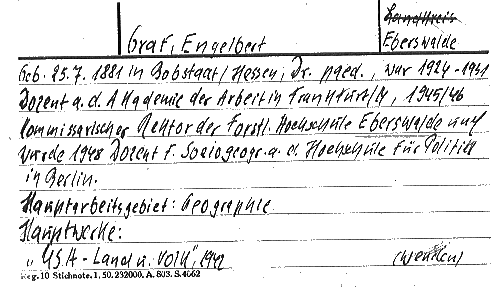 Graf, Engelbert
Landkreis
Eberswalde
Geb. 25.7.1881 in Bobstaat/Hessen, Dr. paed., war 1924-1931
Dozent a.d. Akademie der Arbeit in Frankfurt/M, 1945/46
kommissarischer Rektor der Forstl. Hochschule Eberswalde und
wurde 1948 Dozent f. Soziogeogr. a. d. Hochschule für Politik
in Berlin.
Hauptarbeitsgebiet: Geographie
Hauptwerke:
"USA - Land u. Volk", 1942
(wenden)
Reg. 10 Stichnote. 1, 50. 232000. A. 803. S. 4662